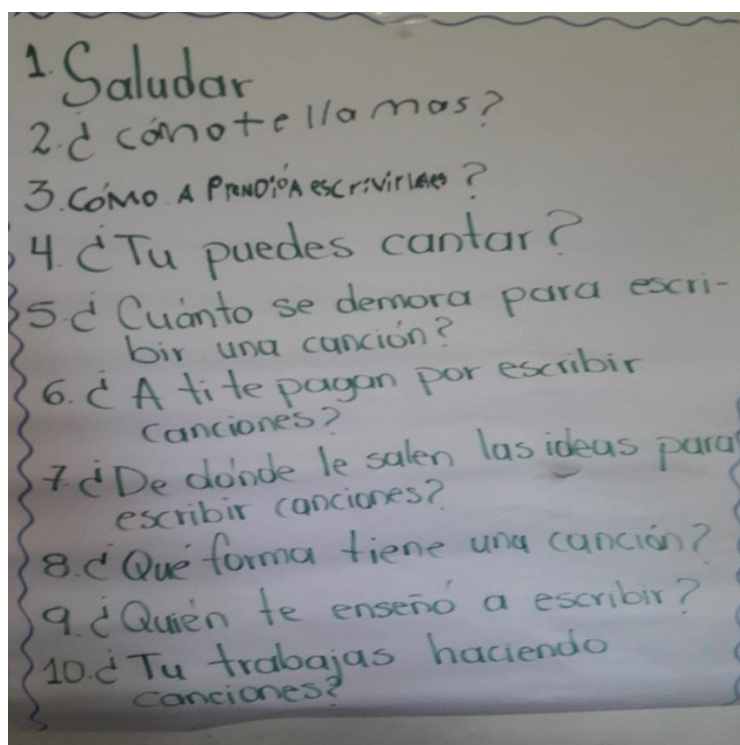 1. Saludar
2. ¿cómo te llamas?
3. CÓMO A PRENDIÓA escrivir
4. ¿Tu puedes cantar?
5. ¿Cuánto se demora para escri-
bir una canción?
6. ¿A ti te pagan por escribir
canciones?
7. ¿De dónde le salen las ideas para
escribir canciones?
8. ¿Qué forma tiene una canción?
9. ¿Quién te enseñó a escribir?
10. ¿Tu trabajas haciendo
canciones?